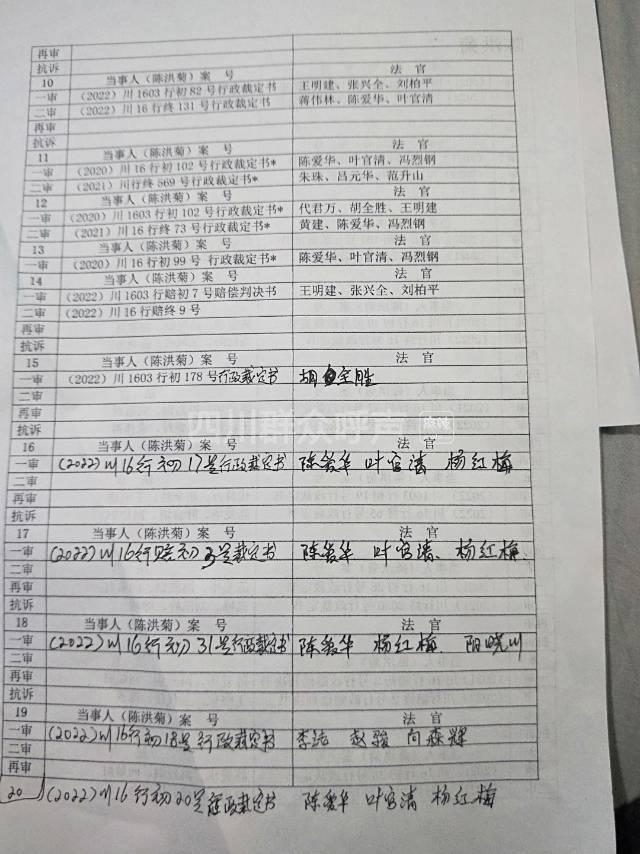 再审
抗诉
10 当事人（陈洪菊）案 号 法 官
一审 （2022）川 1603 行初 82 号行政裁定书 王明建、张兴全、刘柏平
二审 （2022）川 16 行终 131 号行政裁定书 蒋伟林、陈爱华、叶官清
再审
抗诉
11 当事人（陈洪菊）案 号 法 官
一审 （2020）川 16 行初 102 号行政裁定书* 陈爱华、叶官清、冯烈钢
二审 （2021）川行终 569 号行政裁定书* 朱珠、吕元华、范升山
12 当事人（陈洪菊）案 号 法 官
一审 （2020）川 1603 行初 102 号行政裁定书* 代君万、胡全胜、王明建
二审 （2021）川 16 行终 73 号行政裁定书* 黄建、陈爱华、冯烈钢
13 当事人（陈洪菊）案 号 法 官
一审 （2020）川 16 行初 99 号 行政裁定书* 陈爱华、叶官清、冯烈钢
14 当事人（陈洪菊）案 号 法 官
一审 （2022）川 1603 行赔初 7 号赔偿判决书 王明建、张兴全、刘柏平
二审 （2022）川 16 行赔终 9 号
再审
抗诉
15 当事人（陈洪菊）案 号 法 官
一审 （2022）川 1603 行初 178 号行政裁定书 胡全胜
二审
再审
四川群众呼声
抗诉
16 当事人（陈洪菊）案 号 法 官
一审 （2022）川16行初17号行政裁定书 陈爱华 叶官清 杨红梅
二审
再审
抗诉
17 当事人（陈洪菊）案 号 法 官
一审 （2022）川16行赔初3号裁定书 陈爱华 叶官清、杨红梅
二审
再审
抗诉
18 当事人（陈洪菊）案 号 法 官
一审 （2022）川16行初31号行政裁定书 陈爱华 杨红梅 阳晓川
二审
再审
抗诉
19 当事人（陈洪菊）案 号 法 官
一审 （2022）川16行初18号行政裁定书 李洁 赵骏 向森辉
二审
再审
20 （2022）川16行初20号行政裁定书 陈爱华 叶官清 杨红梅